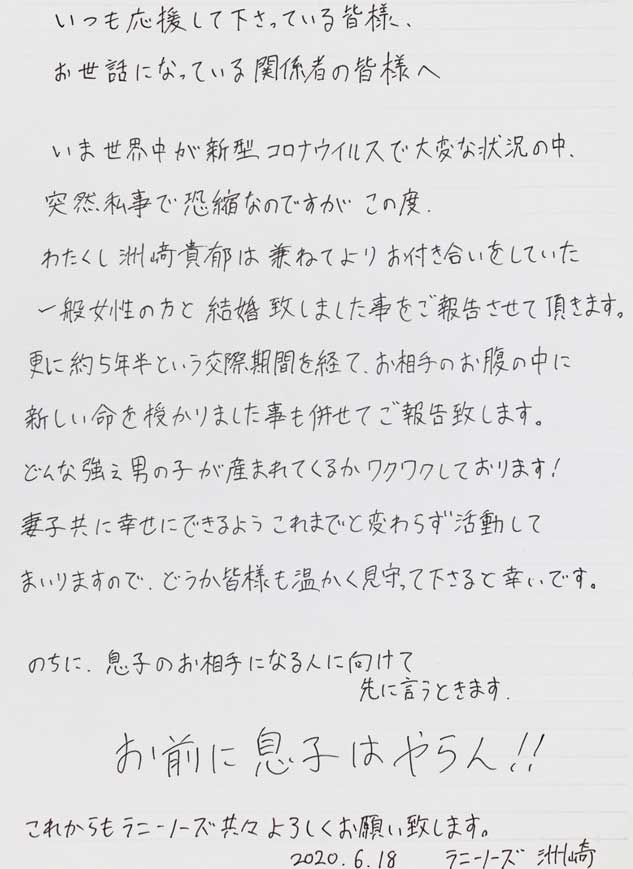 いつも応援して下さっている皆様、
お世話になっている関係者の皆様へ
いま世界中が新型コロナウイルスで大変な状況の中、
突然私事で恐縮なのですが この度、
わたくし洲﨑貴郁は兼ねてよりお付き合いをしていた
一般女性の方と結婚致しました事をご報告させて頂きます。
更に約5年半という交際期間を経て、お相手のお腹の中に
新しい命を授かりました事も併せてご報告致します。
どんな強ぇ男の子が産まれてくるかワクワクしております!
妻子共に幸せにできるようこれまでと変わらず活動して
まいりますので、どうか皆様も温かく見守って下さると幸いです。
のちに、息子のお相手になる人に向けて
先に言うときます.
お前に息子はやらん!!
これからもラニーノーズ共々よろしくお願い致します。
2020.6.18 ラニーノーズ 洲崎